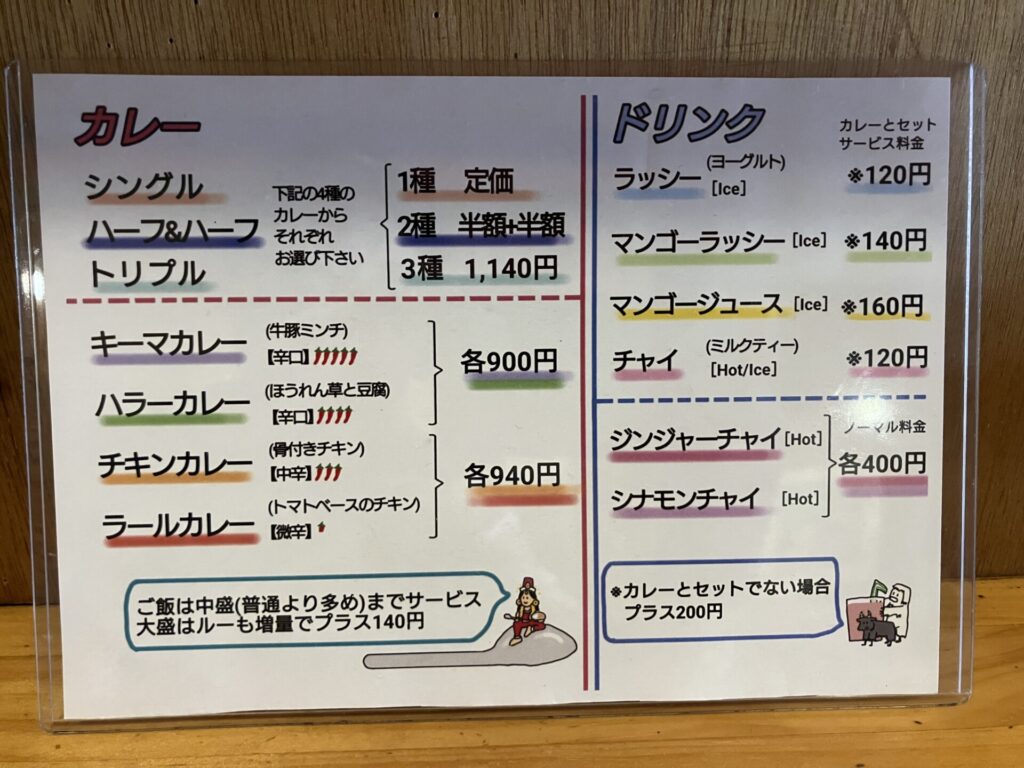 カレー
シングル
ハーフ&ハーフ
トリプル
下記の4種の
カレーから
それぞれ
お選び下さい
1種 定価
2種 半額+半額
3種 1,140円
キーマカレー
(牛豚ミンチ)
【辛口】
ハラーカレー
(ほうれん草と豆腐)
【辛口】
各900円
チキンカレー
(骨付きチキン)
【中辛】
ラールカレー
(トマトベースのチキン)
【微辛】
各940円
ご飯は中盛(普通より多め)までサービス
大盛はルーも増量でプラス140円
ドリンク
カレーとセット
サービス料金
ラッシー
(ヨーグルト)
[Ice]
※120円
マンゴーラッシー [Ice] ※140円
マンゴージュース [Ice] ※160円
チャイ
(ミルクティー)
[Hot/Ice]
※120円
ノーマル料金
ジンジャーチャイ [Hot]
シナモンチャイ [Hot]
各400円
※カレーとセットでない場合
プラス200円